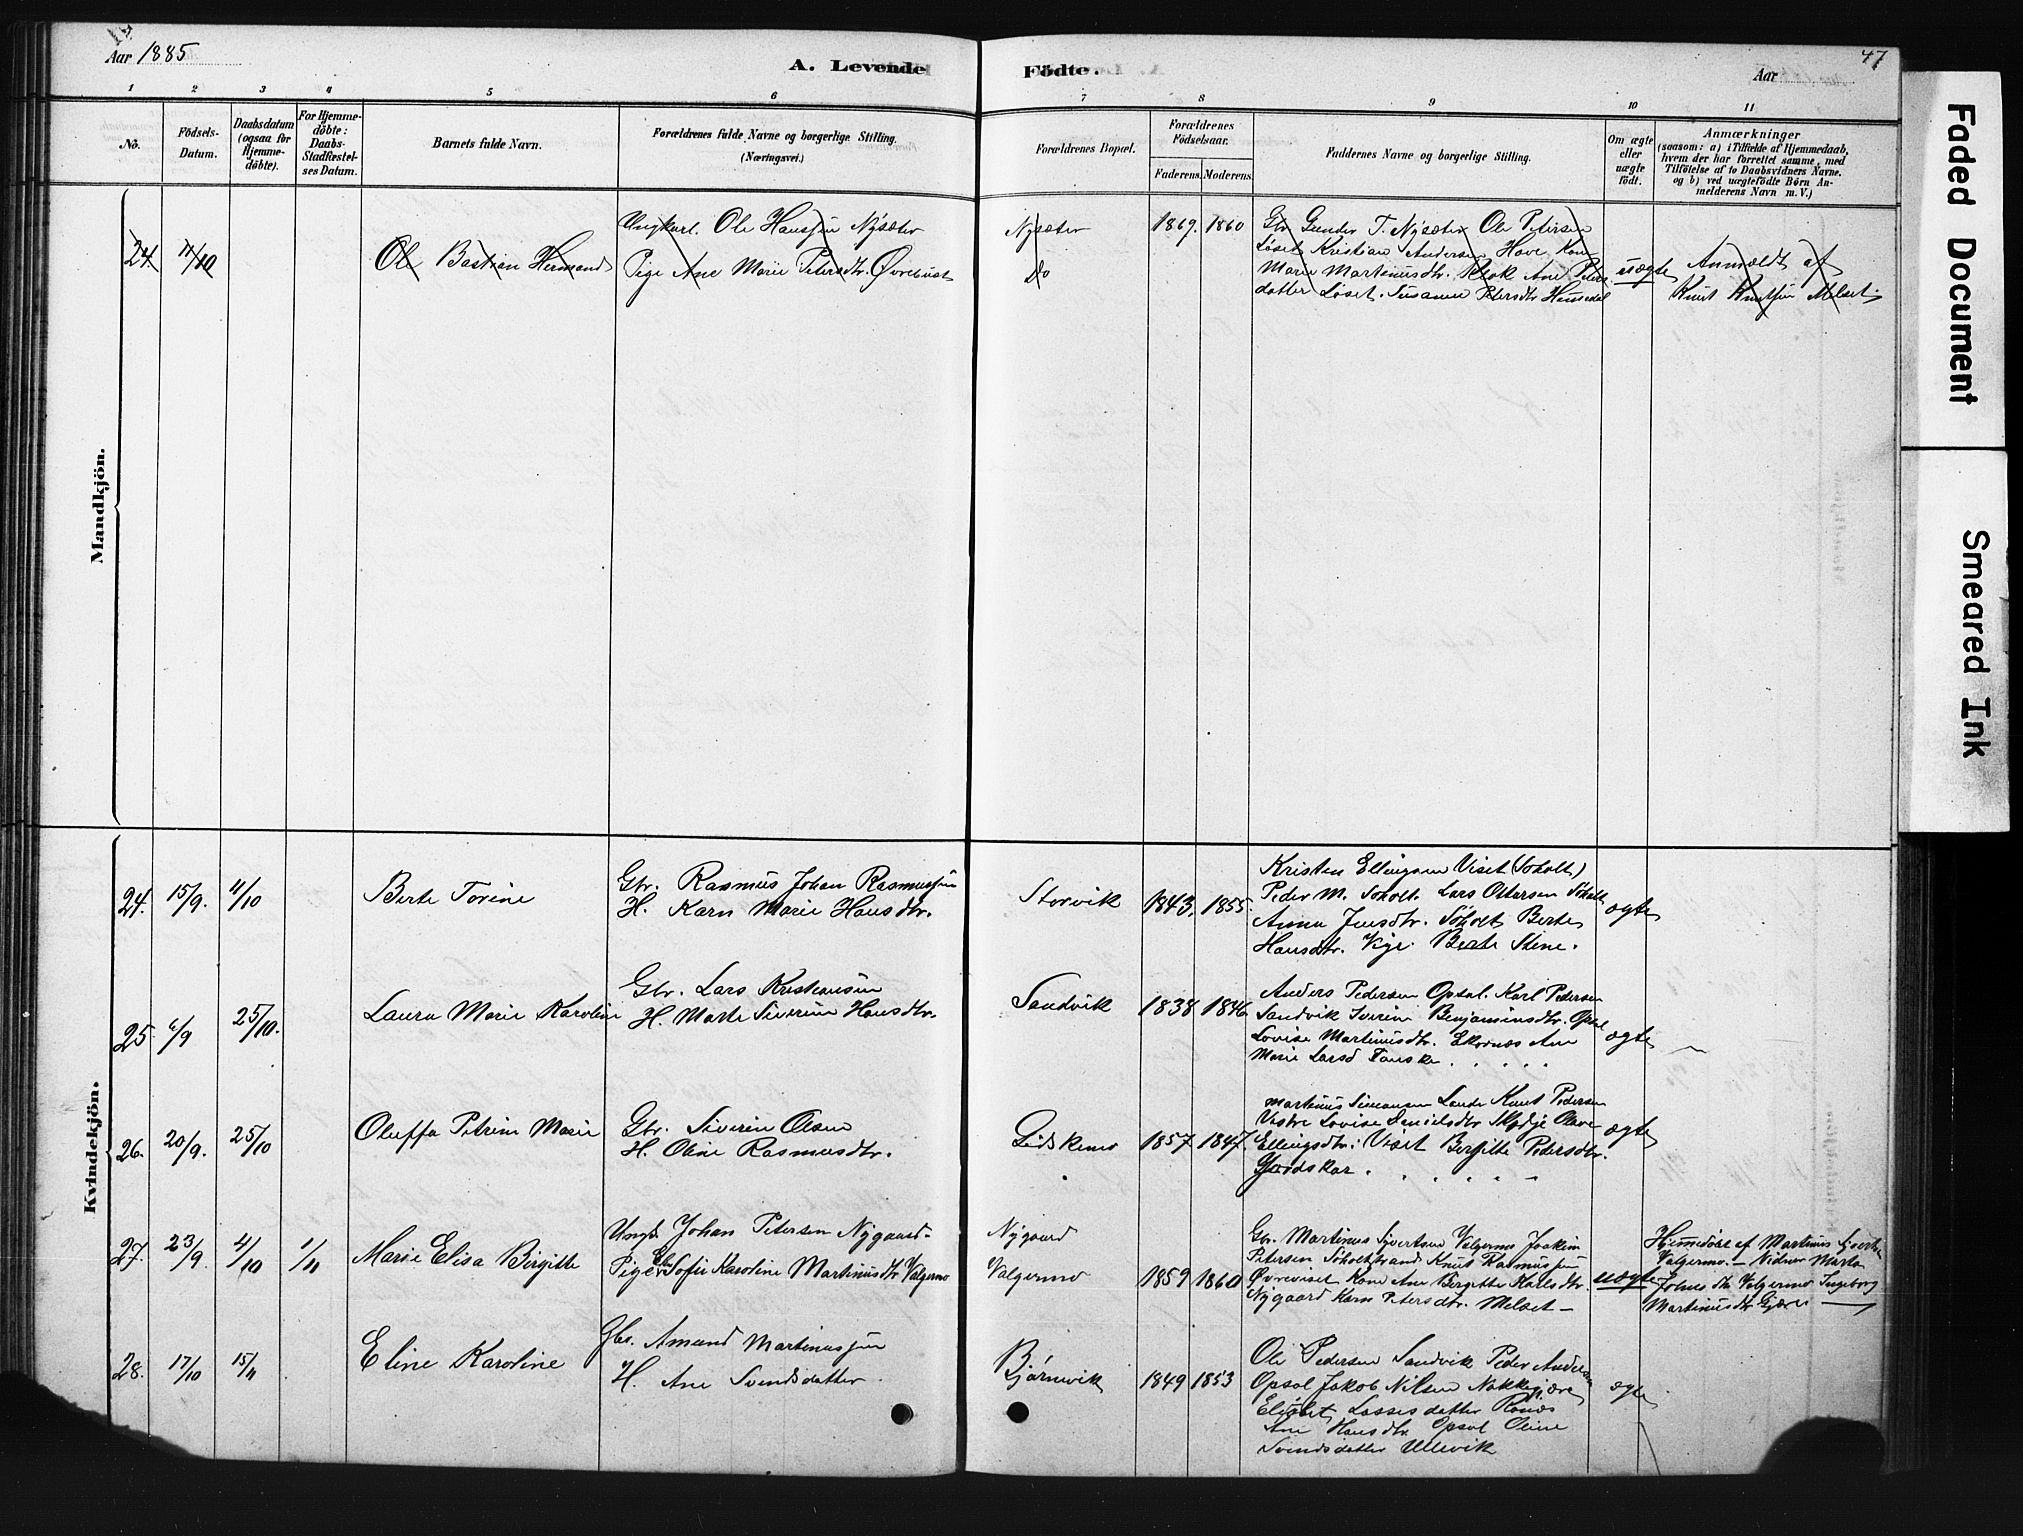 Aar 1885
A. Levende
Födte.
Aar
47
1 2 3 4 5 6 7 8 9 10 11
No.
Födsels-
Datum.
Daabsdatum
(ogsaa for
Hjemme-
döbte).
For Hjemme-
döbte:
Daabs-
Stadfæstel-
ses Datum.
Barnets fulde Navn.
Forældrenes fulde Navne og borgerlige Stilling.
(Næringsvei.)
Forældrenes Bopæl.
Forældrenes
Födselsaar.
Faderens. Moderens.
Faddernes Navne og borgerlige Stilling.
Om ægte
eller
uægte
födt.
Anmærkninger
(saasom: a) i Tilfælde af Hjemmedaab,
hvem der har forrettet samme, med
Tilföielse af to Daabsvidners Navne.
og b) ved uægtefödte Börn An-
melderens Navn m. V.)
Mandkjön.
24. 11/10
Ole Bastian Hermand
Ungkarl. Ole Hansen Nysæter
Pige Ane Marie Petersdtr. Øvrebust
Nysæter
Do
1869. 1860
Gbr Gunder T. Nysæter Ole Petersen
Løset Kristian Andersen Hove Kone
Marie Martinusdtr. Klok Ane Peters
datter Løset. Susanne Petersdtr Hensedal
uægte
Anmeldt af
Knut Knutsen Melset.
Kvindekjön.
24. 15/9. 11/10
Berte Torine
Gbr. Rasmus Johan Rasmussen
H. Karn Marie Hansdtr.
Storvik
1843. 1855.
Kristen Ellingsen Viset (Soholt)
Peder M. Soholt. Lars Ottersen Søholt
Anna Jensdtr. Søholt Berte
Hansdtr. Vige. Berte Stene.
ægte
25. 6/9 25/10.
Laura Marie Karoline
Gbr. Lars Kristiansen
H. Marte Siverine Hansdtr.
Sandvik
1838 1846
Anders Pedersen Opsal. Karl Pedersen
Sandvik Iverine Benjaminsdtr. Opsal
Lovise Martinusdtr. Ekornæs Ane
Marie Larsd Fauske
ægte
26. 20/9. 25/10
Oluffa Petrine Marie
Gbr. Siverin Olsen
H. Oline Rasmusdtr.
Gidskemo
1857 1847.
Martinus Simonsen Lande Knut Pedersen
Vestre Lovise Danielsdtr Skodje Olave
Ellingsdtr. Viset Bergitte Pedersdtr.
Gjærdskar
ægte
27. 23/9. 4/10 1/11
Marie Elisa Birgitte
Ungk. Johan Petersen Nygaard
Pige Sofie Karoline Martinusdtr Valgermo
Nygaard
Valgermo
1859 1860
Gbr. Martinus Sivertsen Valgermo Joakim
Petersen Soholtstrand Knut Rasmussen
Øvreviset Kone Ane Bergitte Karlsdtr.
Nygaard Karn Petersdtr. Melset
uægte
Hjemedøbt af Martinus Sivertsen
Valgermo. Vidner Marta
Johns dtr Valgermo Ingeborg
Martinusdtr Gjære
28. 17/10 15/11
Eline Karoline
Gbr. Amund Martinussen
H. Ane Svendsdatter
Bjørnevik
1849 1853
Ole Pedersen Sandvik Peder Andersen
Opsal Jakob Nilsen Nakkegjære
Elisabet Lassesdatter Ronæs
Ane Hansdtr Opsal Oline
Svendsdatter Ullevik
ægte
Faded Document
Smeared Ink